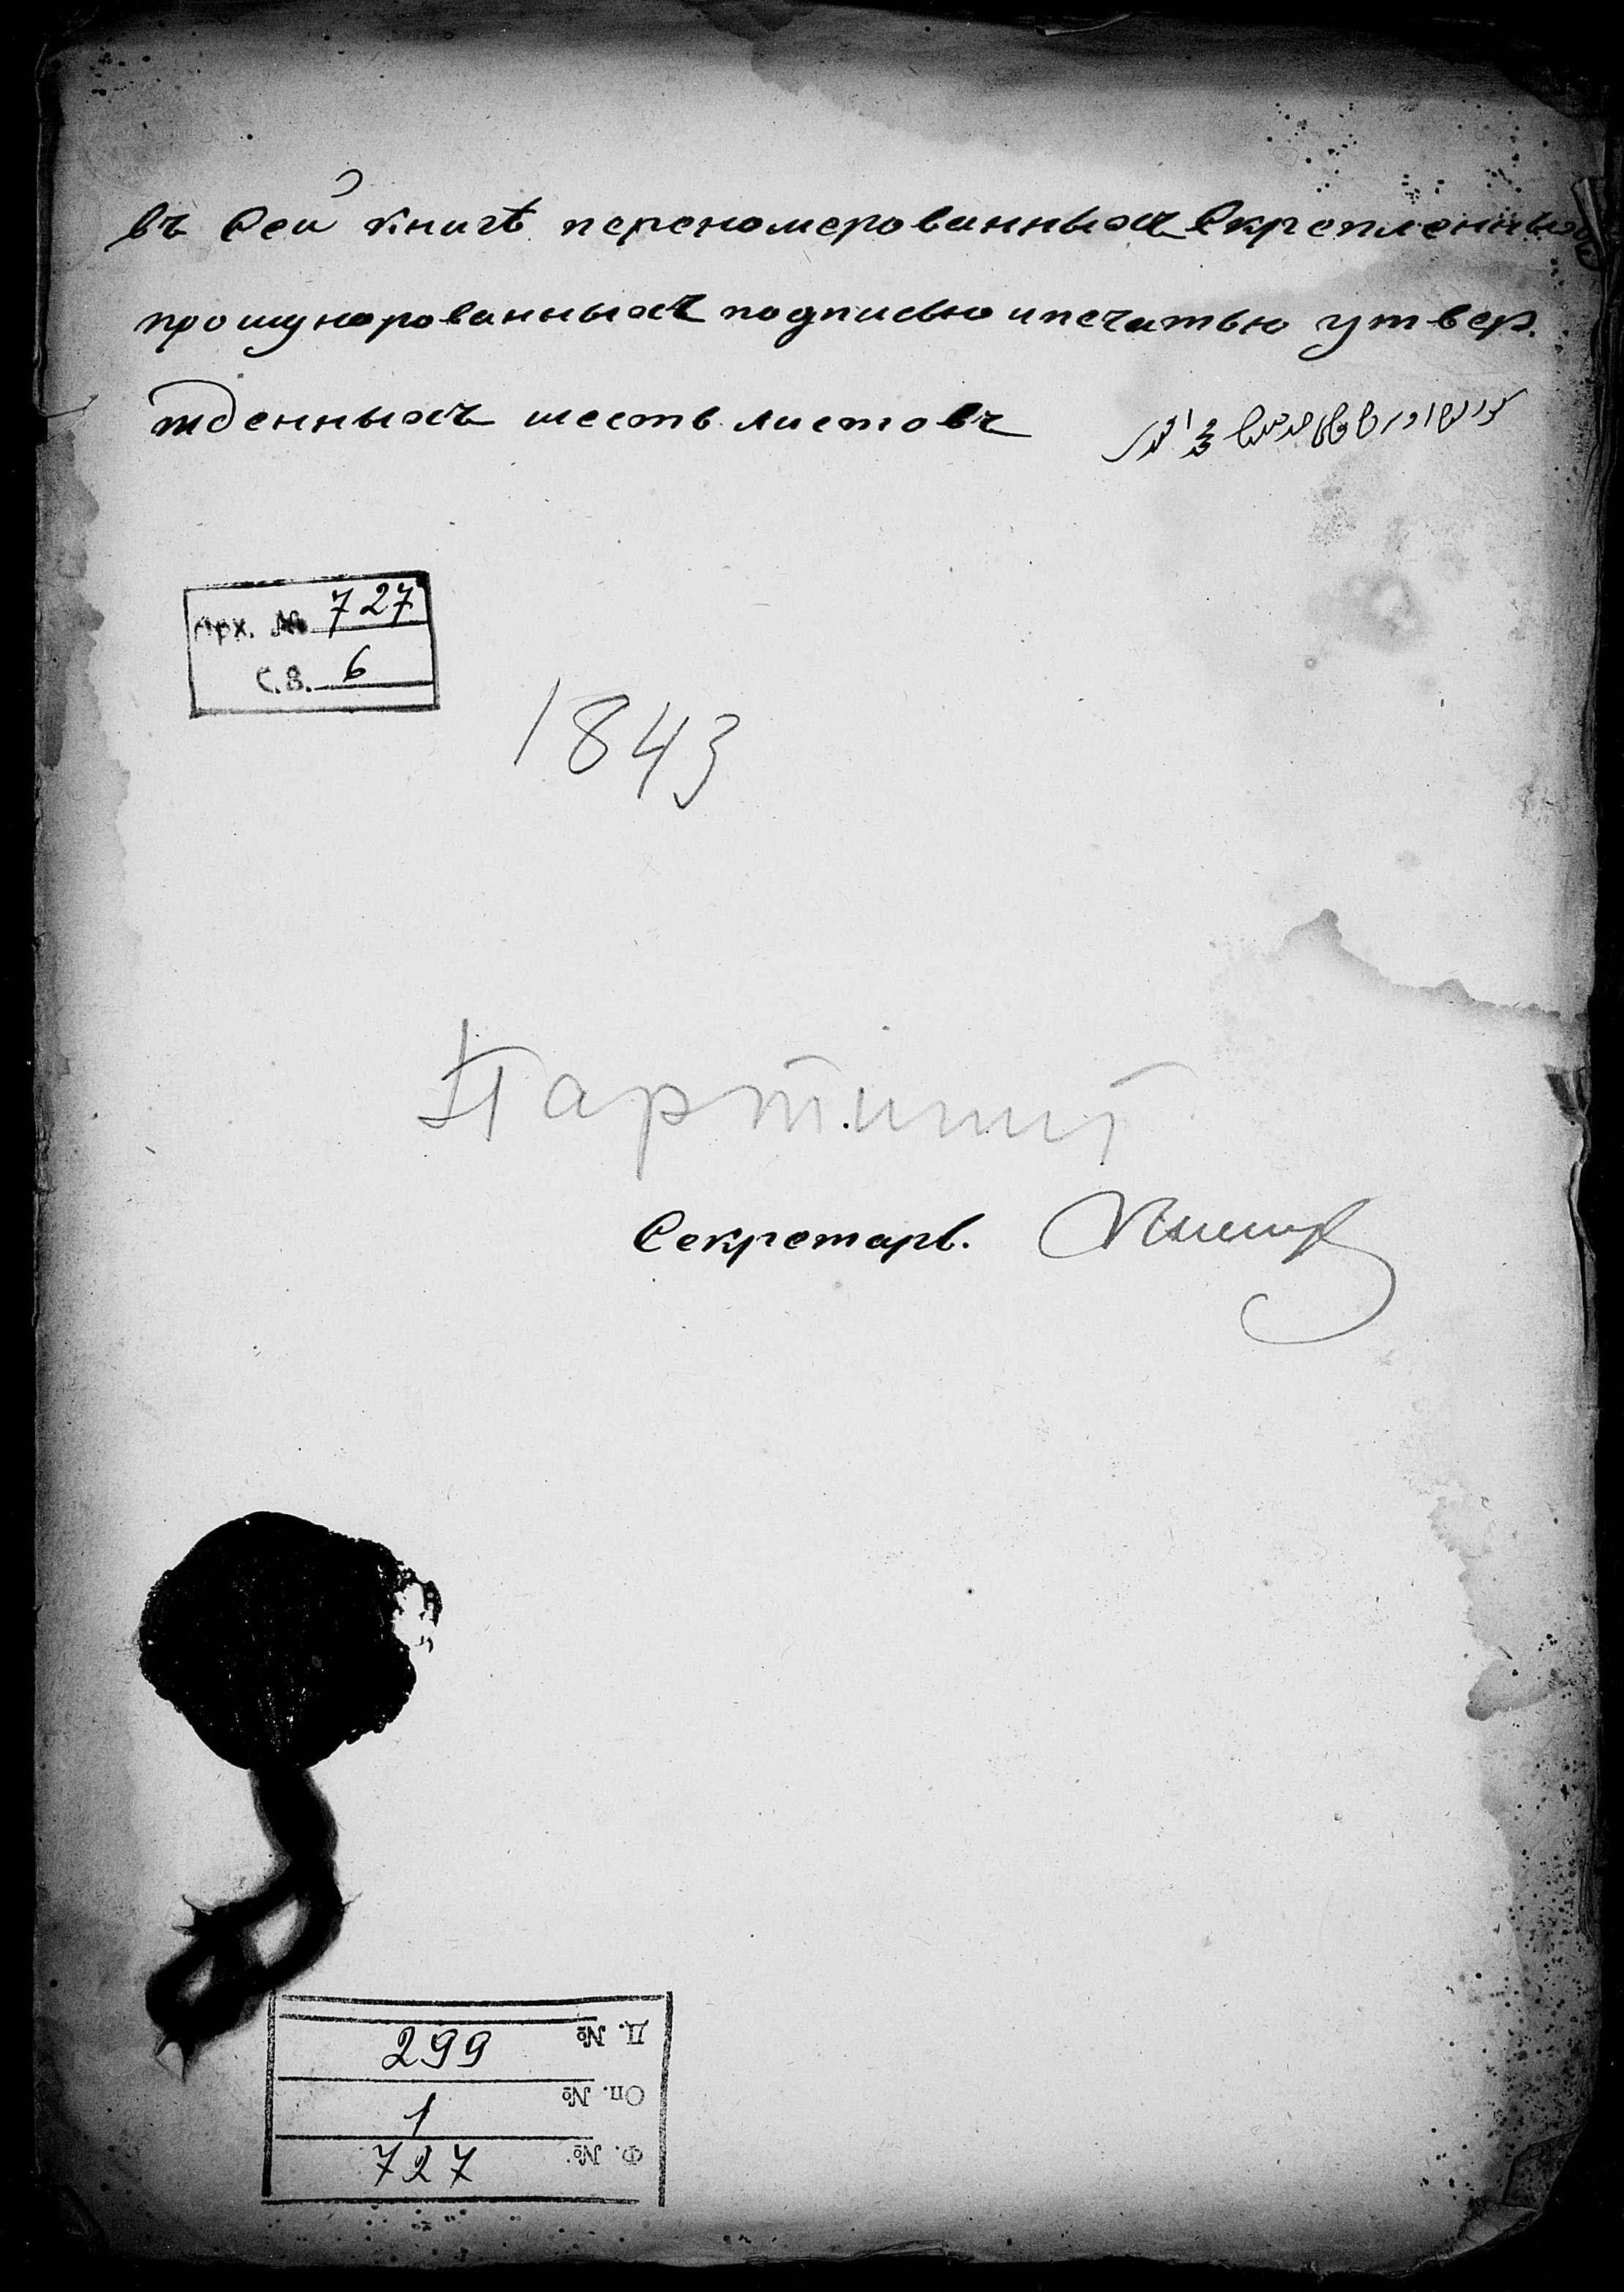 въ Сей книгѣ переномерованныхъ Скрепленныхъ
прошунорованныхъ подписью и печатью утвер.
жденныхъ шесть листовъ
Арх. № 727
С.В. 6
1843
Партинит
Секретарь.
Д. № 299
Оп. № 1
Ф. № 727